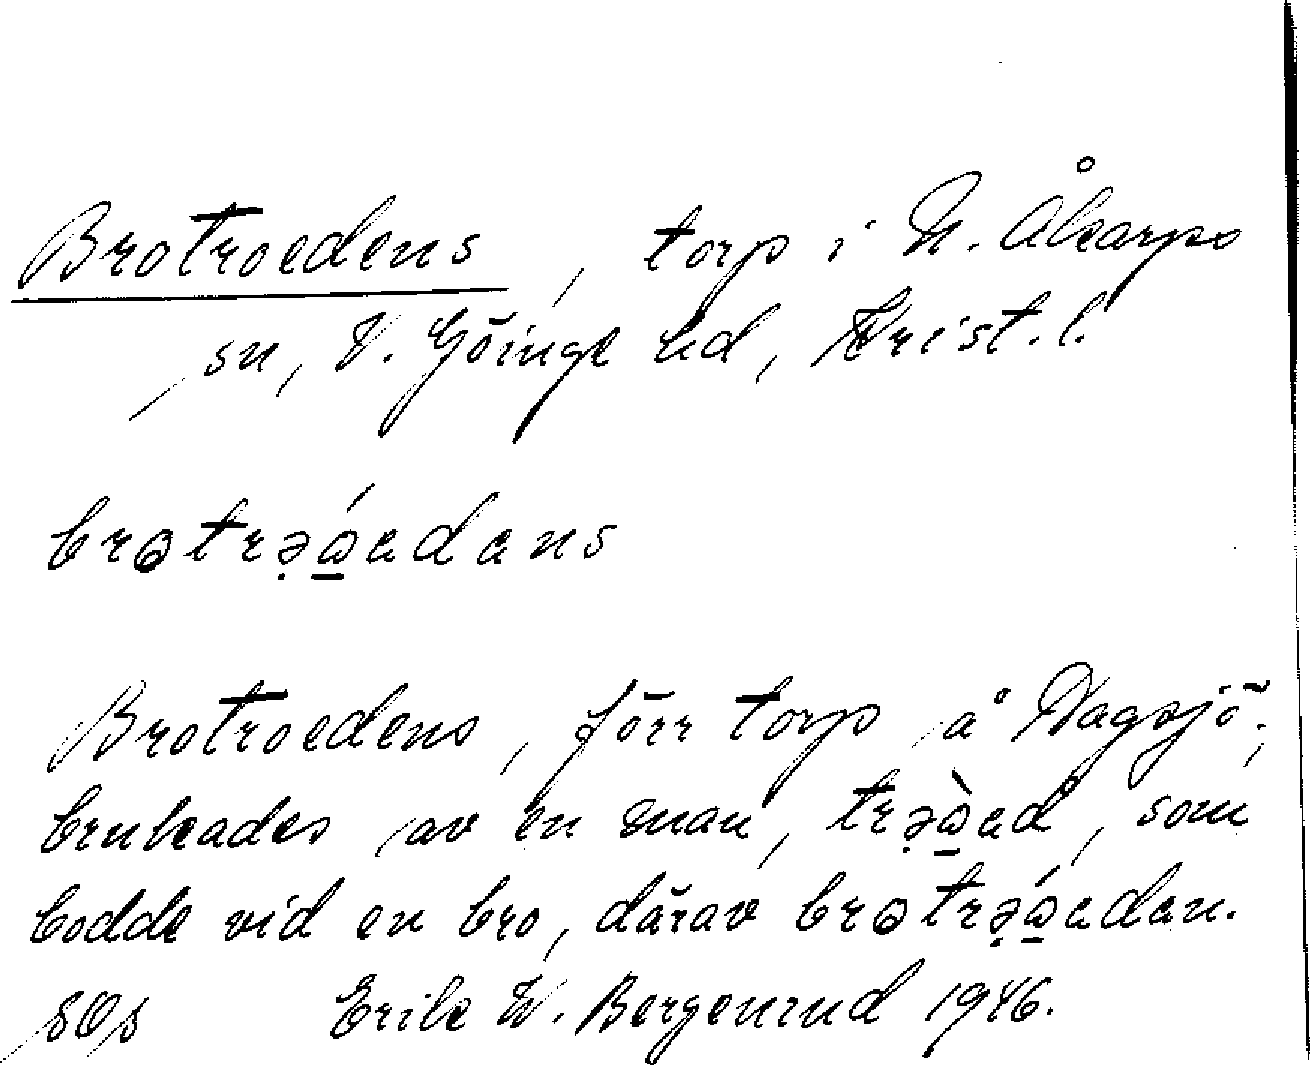 Brotroedens, torp i N. Åkarps
sn, V. Göinge hd, Krist. l.
brɷtrə̣ɷ̠́adans
Brotroedens, förr torp å Nagsjö;
brukades av en man, trə̣ɷ̠̀ad, som
bodde vid en bro, därav brɷtrə̣ɷ̠́adan.
SOs Erik W. Bergenrud 1946.